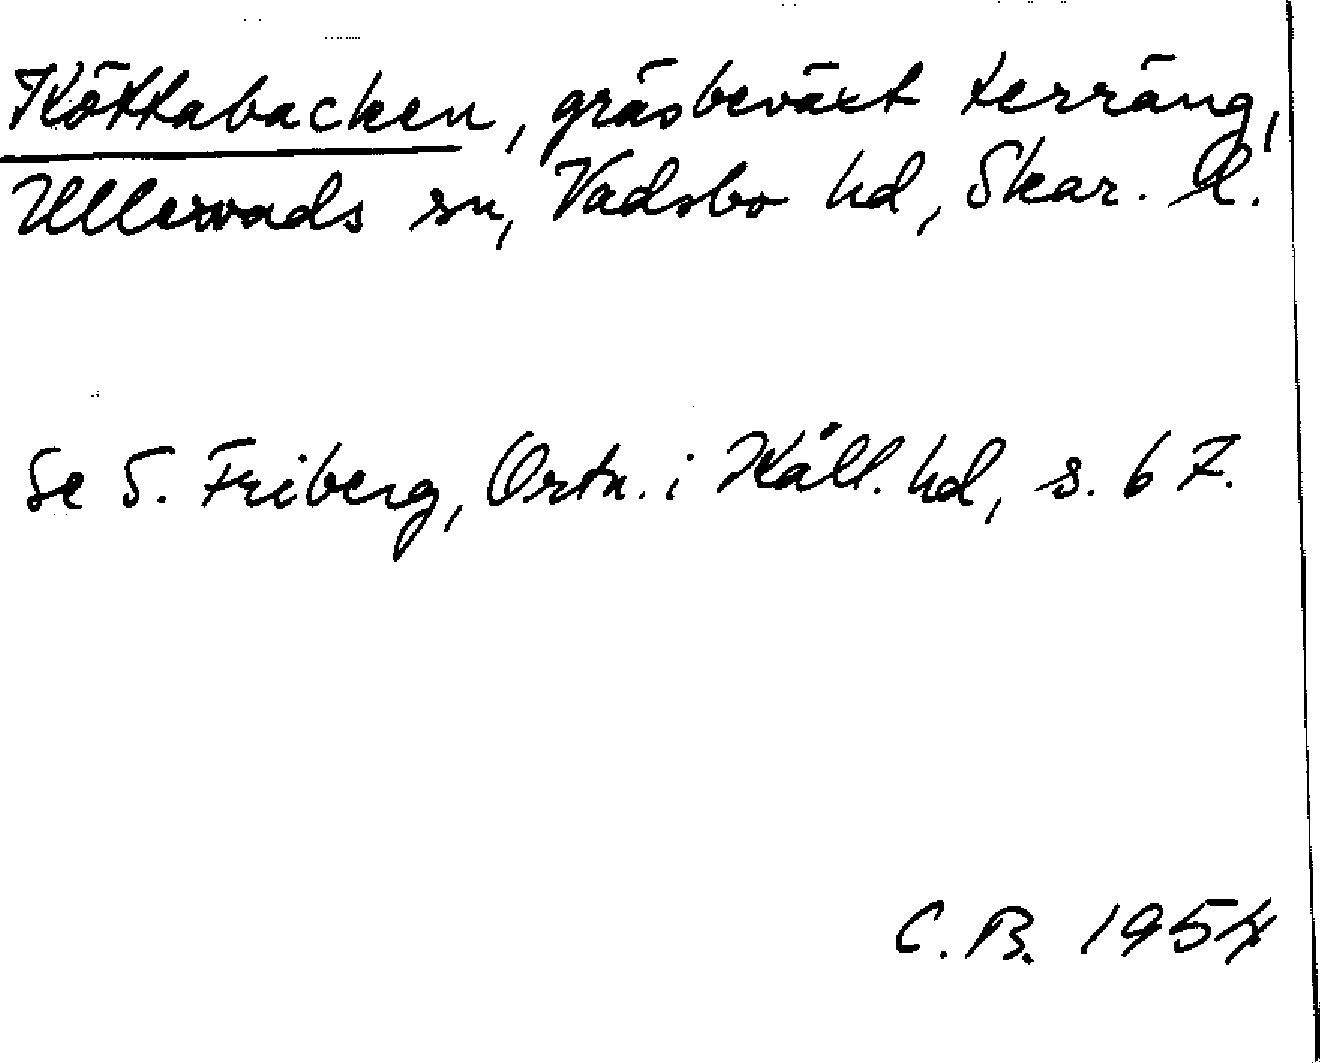 Köttabacken, gräsbeväxt terräng,
Ullervads sn, Vadsbo hd, Skar. l.
Se S. Friberg, Ortn. i Kåll. hd, s. 67.
C. B. 1954